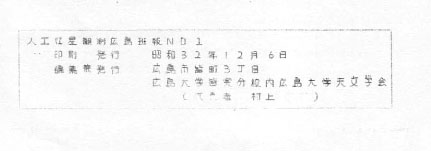 人工衛星観測広島班報NO1
印刷 発行 昭和32年12月6日
編集兼発行 広島市 町3丁目
広島大学 分校内広島大学天文学会
(代表者 村上 )